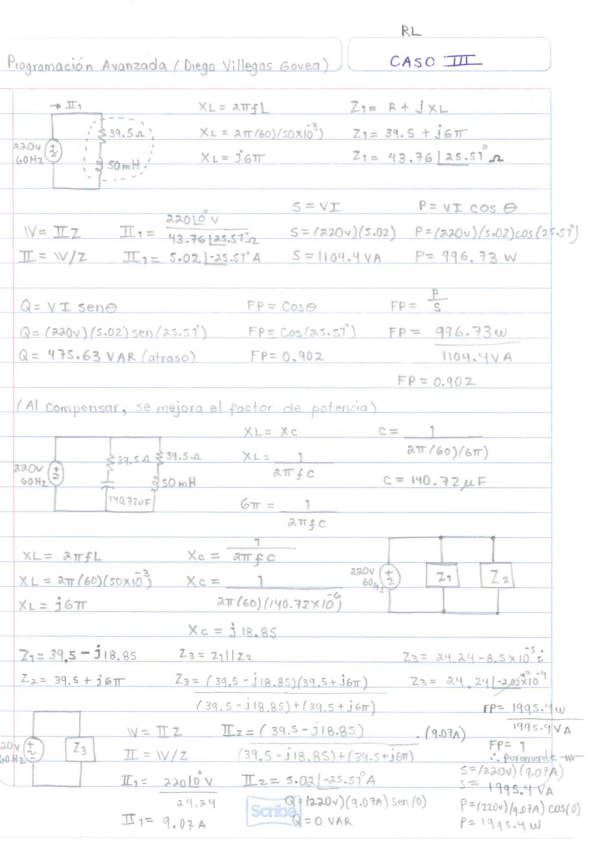 RL
Programación Avanzada (Diego Villegas Govea)
CASO III
→ II₁
220V
60Hz
39.5Ω
50mH
XL = 2πfL
XL = 2π(60)(50x10⁻³)
XL = j6π
Z₁ = R + jXL
Z₁ = 39.5 + j6π
Z₁ = 43.76 |25.51° Ω
V = II Z
II = V/Z
II₁ = 220|0° V / 43.76|25.51°Ω
II₁ = 5.02 |-25.51° A
S = VI
S = (220V)(5.02)
S = 1104.4 VA
P = VI cos θ
P = (220V)(5.02)cos(25.51°)
P = 996.73 W
Q = VI senθ
Q = (220V)(5.02) sen(25.51°)
Q = 475.63 VAR (atraso)
FP = Cosθ
FP = Cos(25.51°)
FP = 0.902
FP = P / S
FP = 996.73w / 1104.4VA
FP = 0.902
(Al compensar, se mejora el factor de potencia)
220V
60Hz
39.5Ω
39.5Ω
50mH
140.72uF
XL = Xc
XL = 1 / 2πfC
6π = 1 / 2πfC
C = 1 / 2π(60)(6π)
C = 140.72 μF
XL = 2πfL
XL = 2π(60)(50x10⁻³)
XL = j6π
Xc = 1 / 2πfC
Xc = 1 / 2π(60)(140.72x10⁻⁶)
Xc = j18.85
220V
60Hz
Z₁
Z₂
Z₁ = 39.5 - j18.85
Z₂ = 39.5 + j6π
Z₃ = Z₁||Z₂
Z₃ = (39.5 - j18.85)(39.5 + j6π) / (39.5 - j18.85) + (39.5 + j6π)
Z₃ = 24.24 - 8.5x10⁻⁵i
Z₃ = 24.24 |-2.02x10⁻⁴
FP = 1995.4w / 1995.4VA
FP = 1
∴ Puramente
20V
60Hz
Z₃
V = II Z
II = V/Z
II₁ = 220|0° V / 24.24
II₁ = 9.07 A
II₂ = (39.5 - j18.85) / (39.5 - j18.85) + (39.5 + j6π) . (9.07A)
II₂ = 5.02 |-25.51° A
Q = (220V)(9.07A) sen(0)
Q = 0 VAR
S = (220V)(9.07A)
S = 1995.4 VA
P = (220V)(9.07A) cos(0)
P = 1995.4 W
Scribe